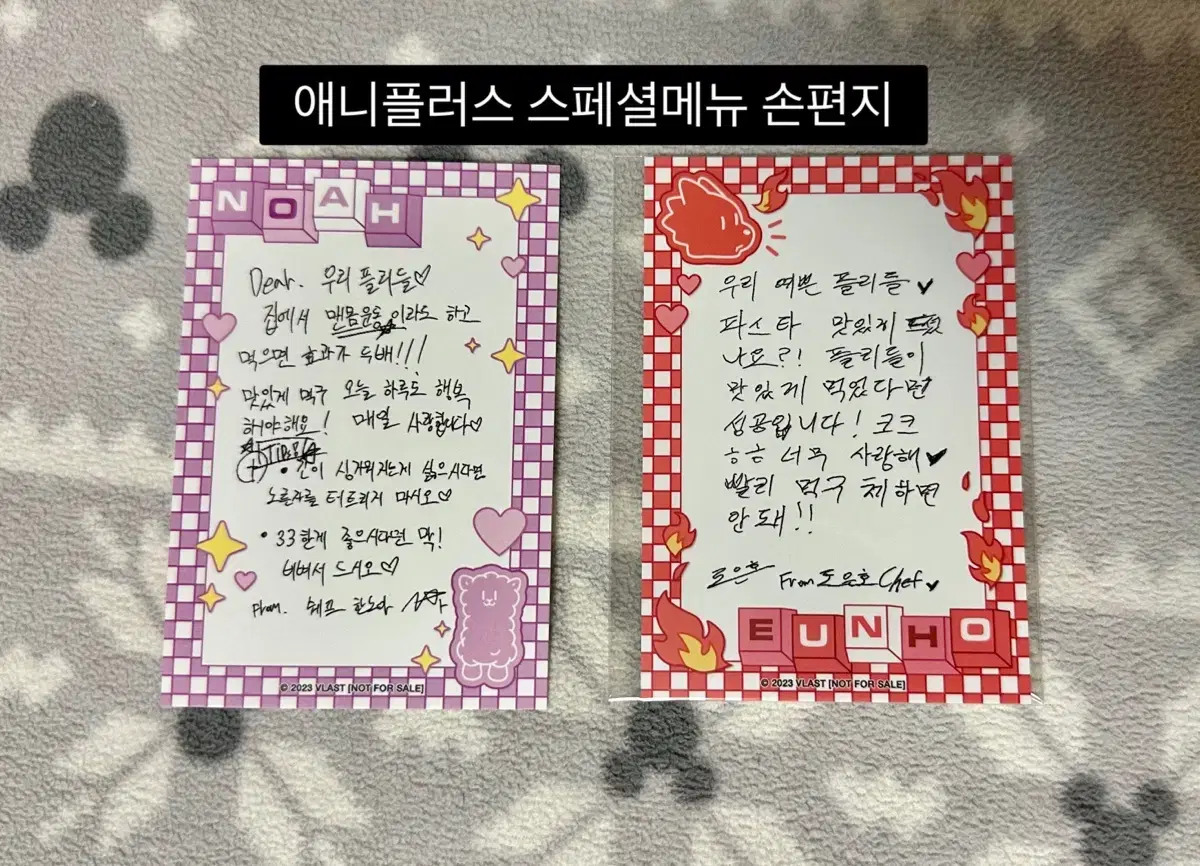 애니플러스 스페셜메뉴 손편지
NOAH
Dear. 우리 플리들♡
집에서 맨몸운동 이라도 하고
먹으면 효과가 두배!!!
맛있게 먹구 오늘 하루도 행복
해야해요! 매일 사랑합니다♡
• 간이 싱거워지는게 싫으시다면
노른자를 터트리지 마시오♡
• 33한게 좋으시다면 막!
비벼서 드시오♡
From. 쉐프 한노아
© 2023 VLAST [NOT FOR SALE]
우리 여쁜 플리들
파스타 맛있게
나요?! 플리들이
맛있게 먹었다면
성공입니다! 코크
ㅎㅎ 너무 사랑해
빨리 먹구 체하면
안돼!!
From 도은호 Chef
EUNHO
© 2023 VLAST [NOT FOR SALE]